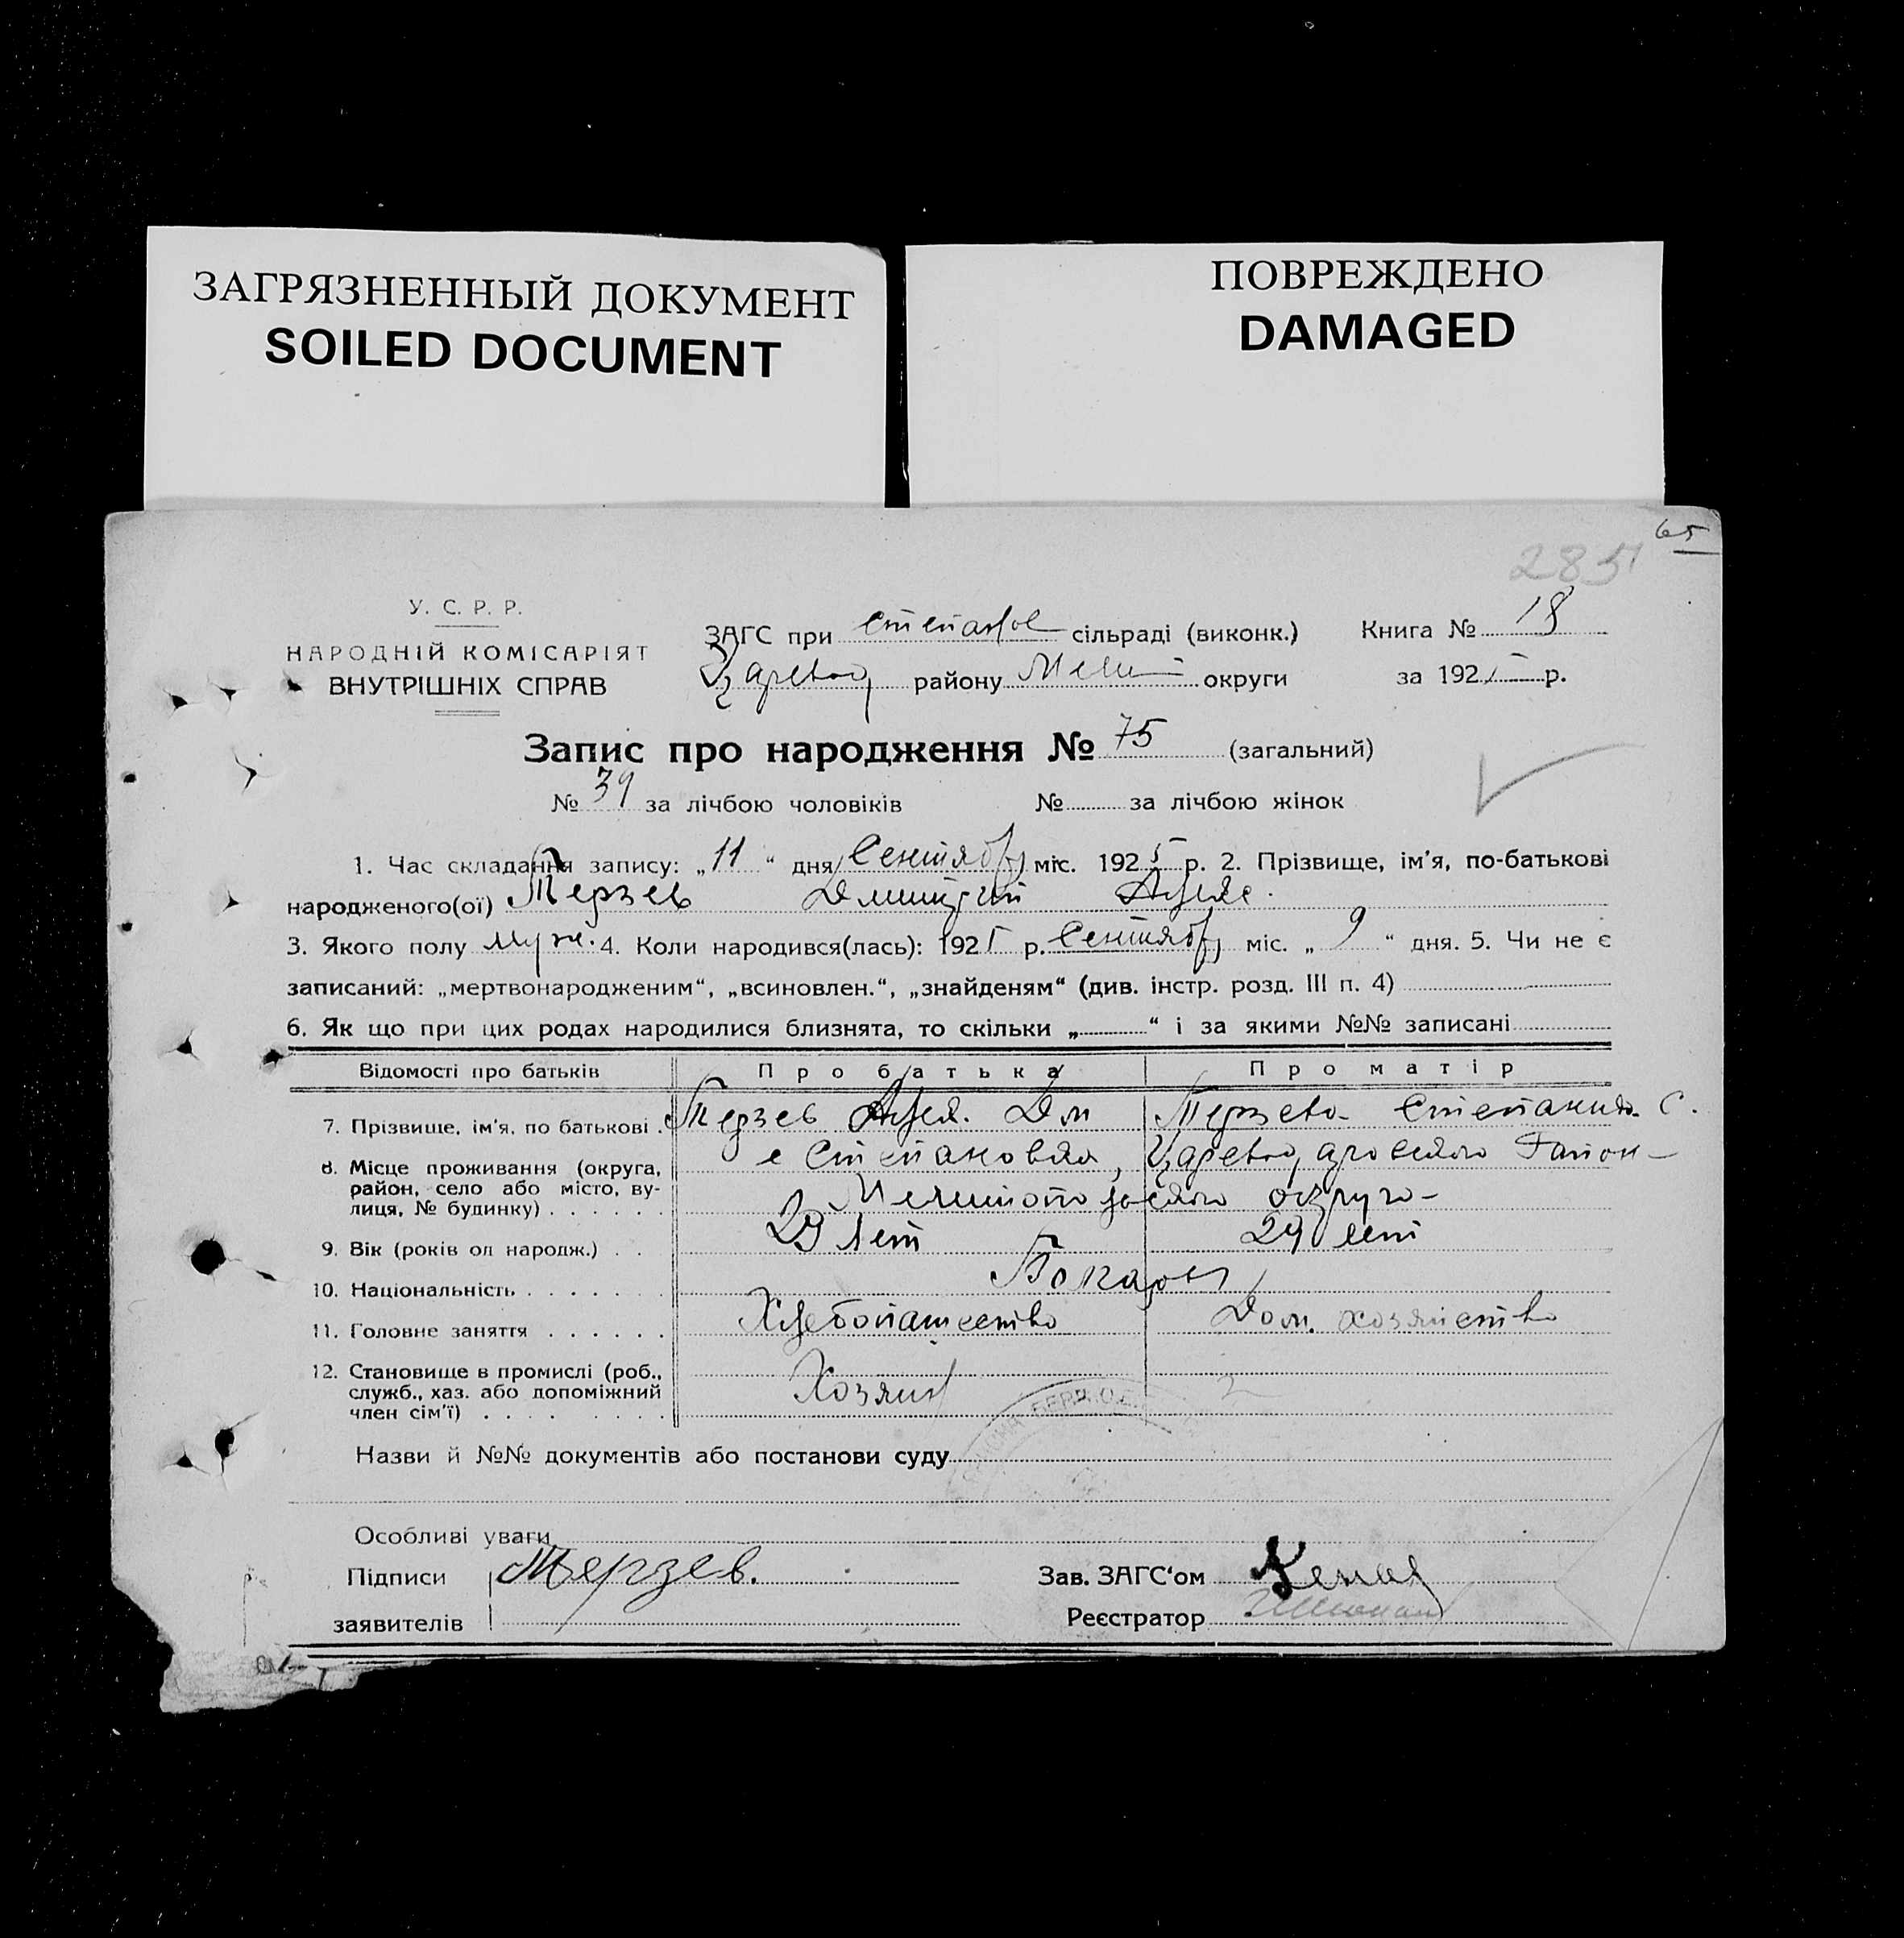 ЗАГРЯЗНЕННЫЙ ДОКУМЕНТ
SOILED DOCUMENT
ПОВРЕЖДЕНО
DAMAGED
65
2851
У. С. Р. Р.
НАРОДНІЙ КОМІСАРІЯТ
ВНУТРІШНІХ СПРАВ
ЗАГС при сільраді (виконк.) Книга № 18
району Мели округи за 1925 р.
Запис про народження № 75 (загальний)
№ 39 за лічбою чоловіків № за лічбою жінок
1. Час складання запису: „11" дня Сентября міс. 1925 р. 2. Прізвище, ім'я, по-батькові
народженого(ої) Терзев Димитрий
3. Якого полу муж. 4. Коли народився(лась): 1925 р. Сентября міс. „9" дня. 5. Чи не є
записаний: „мертвонародженим", „всиновлен.", „знайденям" (див. інстр. розд. III п. 4)
6. Як що при цих родах народилися близнята, то скільки „ " і за якими №№ записані
Відомості про батьків Про батька Про матір
7. Прізвище, ім'я, по батькові Терзев Дм Терзева Степанида С.
8. Місце проживання (округа, район, село або місто, вулиця, № будинку) с Степановка, Район
Мелитопольского округа
9. Вік (років од народж.) 29 лет 29 лет
10. Національність Болгары
11. Головне заняття Хлебопашество Дом. хозяйство
12. Становище в промислі (роб., служб., хаз. або допоміжний член сім'ї) Хозяин
Назви й №№ документів або постанови суду
Особливі уваги
Підписи Терзев. Зав. ЗАГС'ом
заявителів Реєстратор